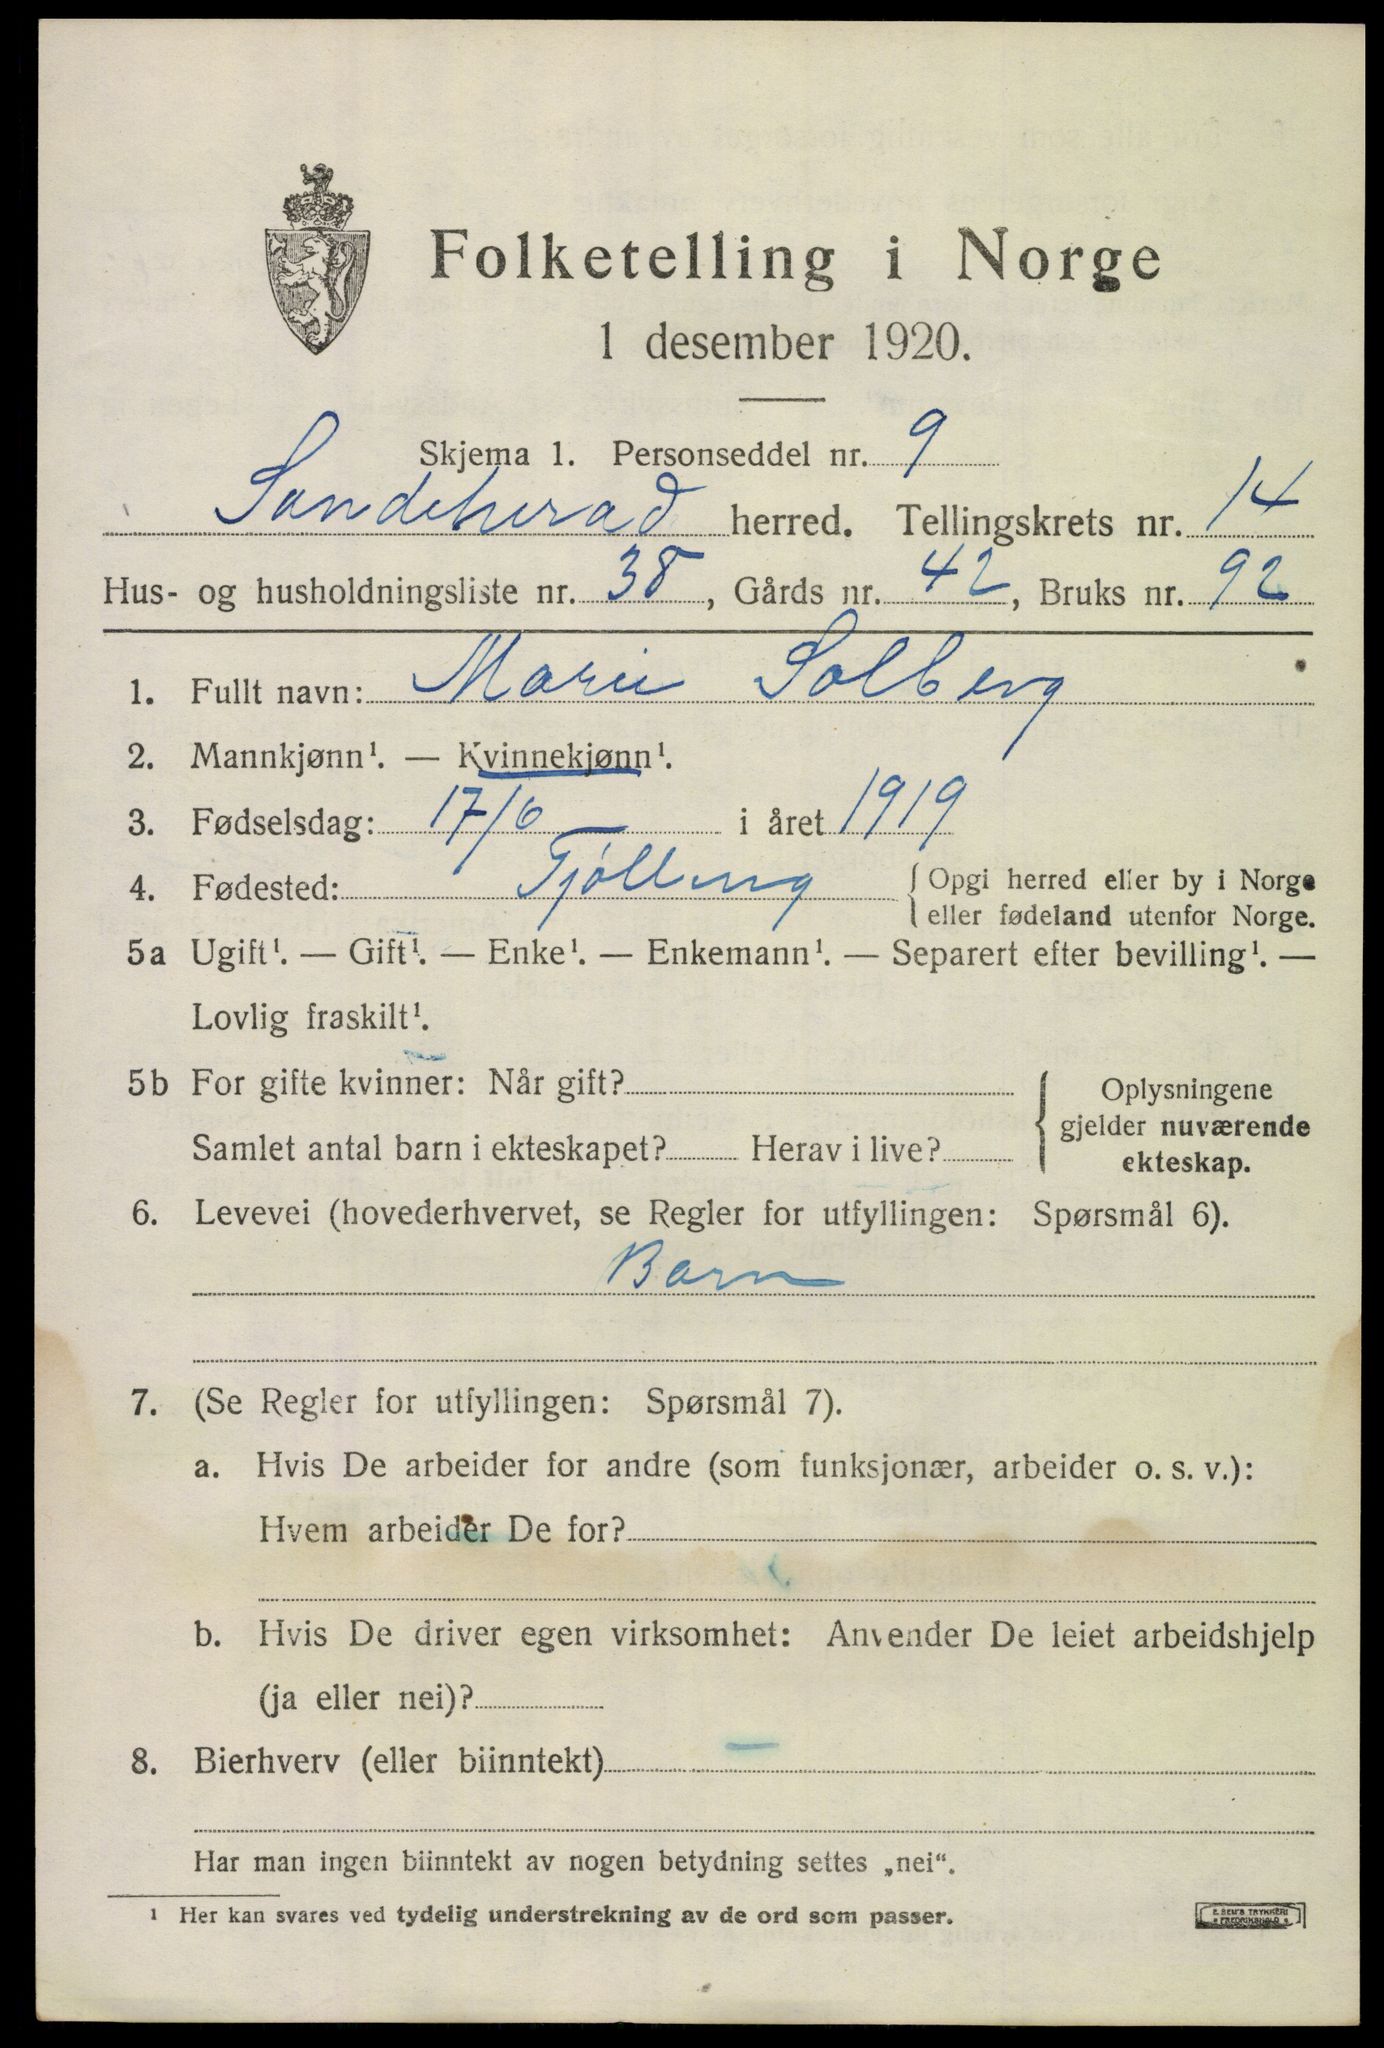 Folketelling i Norge
1 desember 1920.
Skjema 1. Personseddel nr. 9
Sandeherad herred. Tellingskrets nr. 14
Hus- og husholdningsliste nr. 38, Gårds nr. 42, Bruks nr. 92
1. Fullt navn: Marie Solberg
2. Mannkjønn¹. — Kvinnekjønn¹.
3. Fødselsdag: 17/6 i året 1919
4. Fødested: Tjølling { Opgi herred eller by i Norge
eller fødeland utenfor Norge.
5a Ugift¹. — Gift¹. — Enke¹. — Enkemann¹. — Separert efter bevilling¹. —
Lovlig fraskilt¹.
5b For gifte kvinner: Når gift?
Samlet antal barn i ekteskapet? Herav i live?
Oplysningene
gjelder nuværende
ekteskap.
6. Levevei (hovederhvervet, se Regler for utfyllingen: Spørsmål 6).
Barn
7. (Se Regler for utfyllingen: Spørsmål 7).
a. Hvis De arbeider for andre (som funksjonær, arbeider o. s. v.):
Hvem arbeider De for?
b. Hvis De driver egen virksomhet: Anvender De leiet arbeidshjelp
(ja eller nei)?
8. Bierhverv (eller biinntekt) —
Har man ingen biinntekt av nogen betydning settes „nei“.
¹ Her kan svares ved tydelig understrekning av de ord som passer.
E. SEM'S TRYKKERI
FREDRIKSHALD